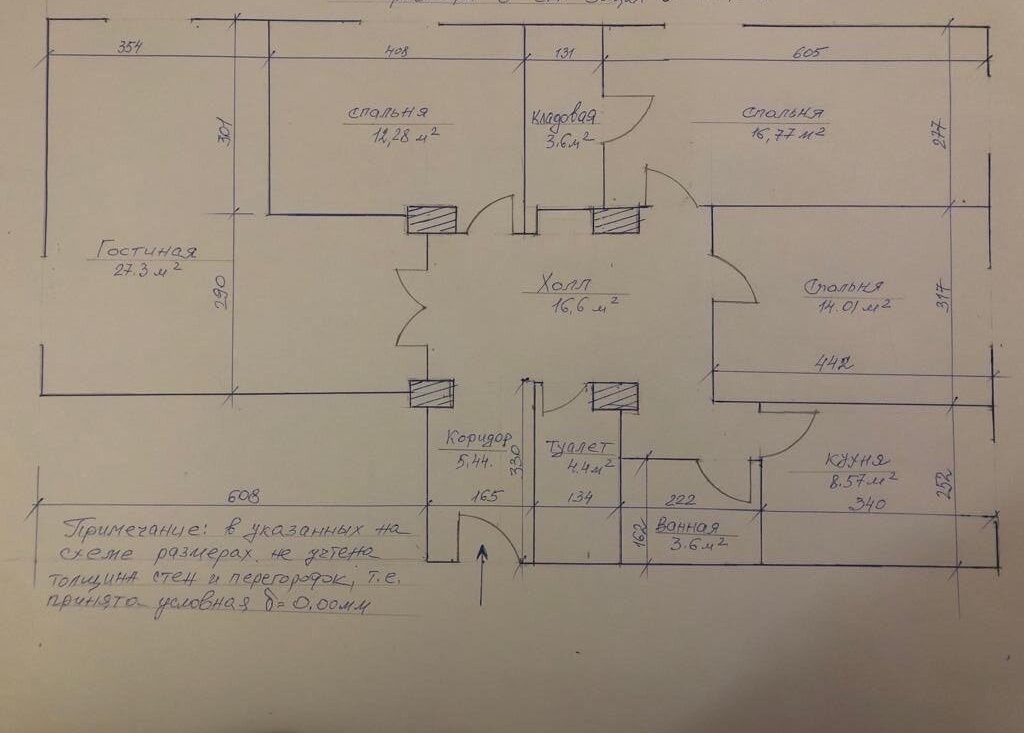 354
408
131
605
301
спальня
12,28 м²
Кладовая
3.6 м²
Спальня
16,77 м²
277
Гостиная
27.3 м²
290
Холл
16,6 м²
Спальня
14.01 м²
317
442
Коридор
5,44.
330
Туалет
4.4 м²
кухня
8.57 м²
252
608
165
134
222
340
162
Ванная
3.6 м²
Примечание: в указанных на
схеме размерах не учтена
толщина стен и перегородок, т.е.
принята условная δ=0,00мм